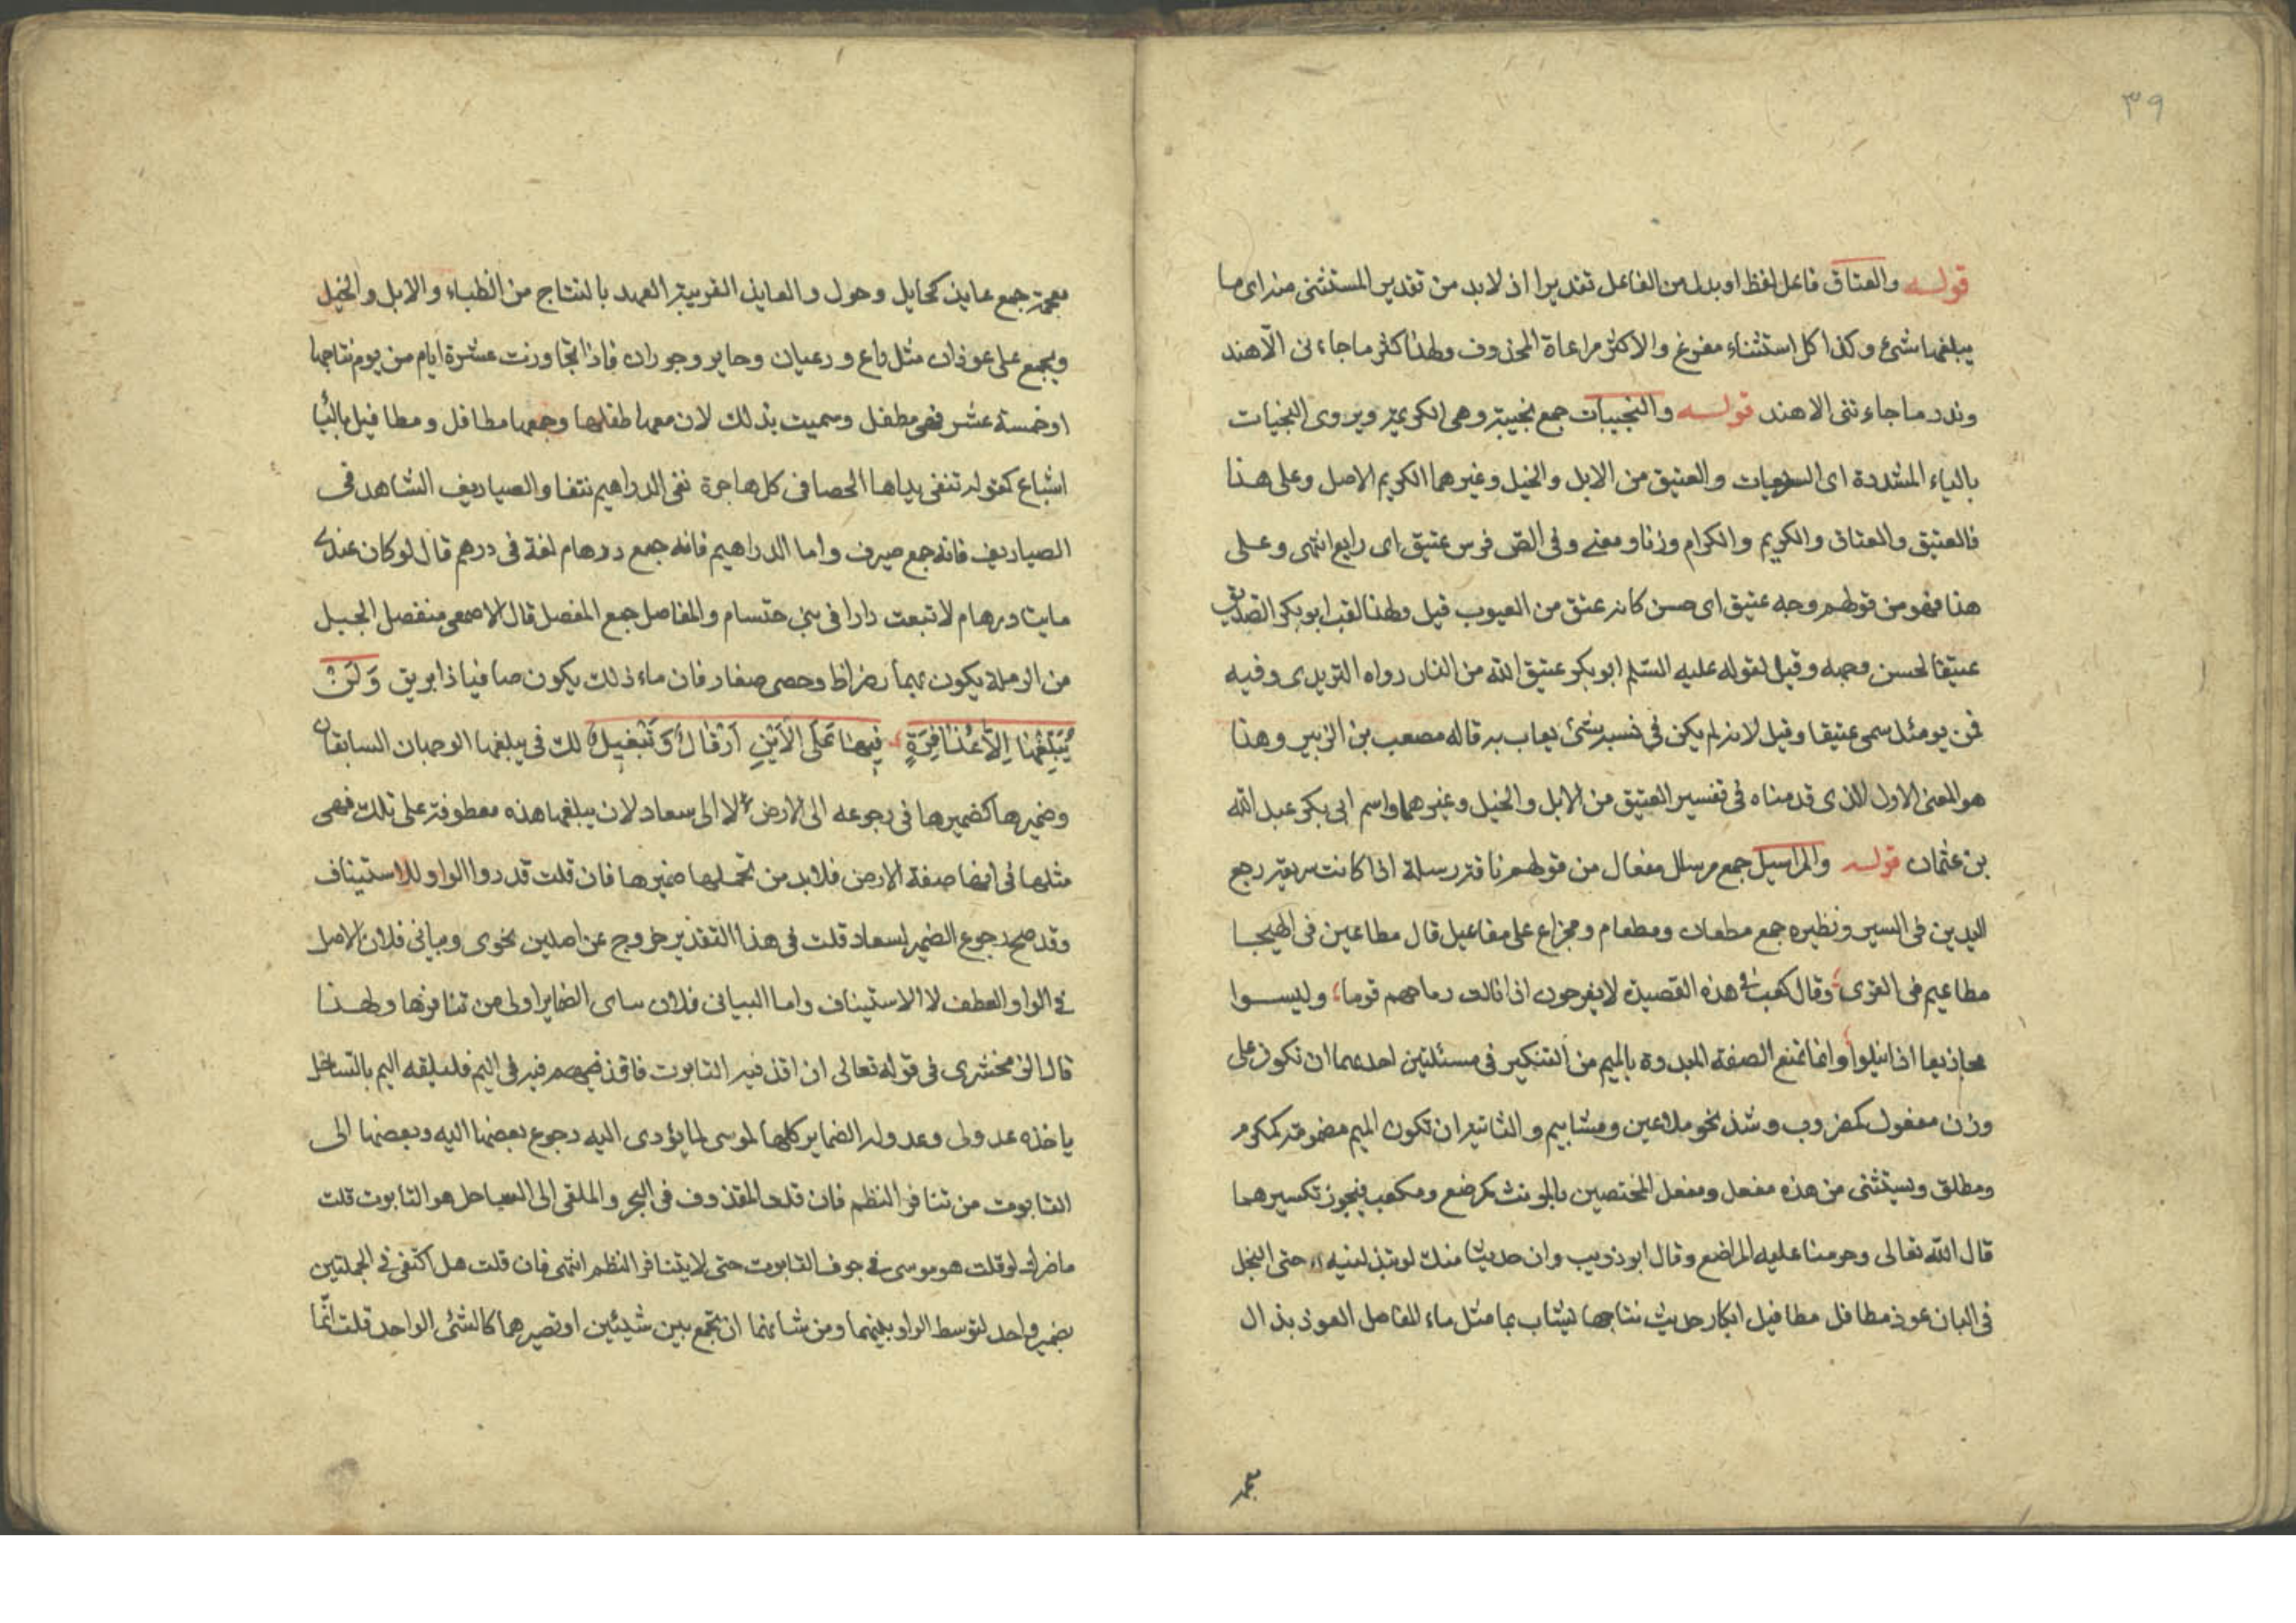 ٣٩
قوله والعتاق فاعل لفظا او بدل من الفاعل تقديرا اذ لابد من تقدير المستثنى منه اى ما
يبلغها شئ وكذا كل استثناء مفرغ والاكثر مراعاة المحذوف ولهذا كثر ماجاءنى الا هند
وندر ماجاءتنى الا هند قوله والنجيبات جمع نجيبة وهى الكريمة ويروى النجيات
بالياء المشددة اى السريعات والعتيق من الابل والخيل وغيرهما الكريم الاصل وعلى هذا
فالعتيق والعتاق والكريم والكرام وزنا ومعنى وفى الص فرس عتيق اى رايع انتهى وعلى
هذا فهو من قولهم وجه عتيق اى حسن كانه عتق من العيوب قيل ولهذا لقب ابو بكر الصديق
عتيقا لحسن وجهه وقيل لقوله عليه السلم ابو بكر عتيق الله من النار رواه الترمذى وفيه
فمن يومئذ سمى عتيقا وقيل لانه لم يكن فى نسبه شئ يعاب به قاله مصعب بن الزبير وهذا
هو المعنى الاول الذى قدمناه فى تفسير العتيق من الابل والخيل وغيرهما واسم ابى بكر عبد الله
بن عثمان قوله والمراسيل جمع مرسال مفعال من قولهم ناقة رسلة اذا كانت سريعة رجع
اليدين فى السير ونظيره جمع مطعان ومطعام ومجزاع على مفاعيل قال مطاعين فى الهيجا
مطاعيم فى القرى وقال كعب فى هذه القصيدة لا يفرحون اذا نالت رماحهم قوما وليسوا
مجازيعا اذا نيلوا وانما تمنع الصفة المبدوة بالميم من التكسير فى مسئلتين احديهما ان تكون على
وزن مفعول كمضروب وشذ نحو ملاعين ومشاييم والثانية ان تكون الميم مضمومة كمكرم
ومطلق ويستثنى من هذه مفعل ومفعل المختصين بالمونث كمرضع ومكعب فيجوز تكسيرهما
قال الله تعالى وحرمنا عليه المراضع وقال ابو ذويب وان حديثا منك لو تبذلينه جنى النحل
فى البان عوذ مطافل مطافيل ابكار حديث نتاجها يشاب بما مثل ماء المفاصل العوذ بذال
معجمة جمع عايذ كحايل وحول والعايذ القريبة العهد بالنتاج من الظباء والابل والخيل
ويجمع على عوذان مثل راع ورعيان وحاير وحوران فاذا تجاوزت عشرة ايام من يوم نتاجها
او خمسة عشر فهى مطفل وسميت بذلك لان معها طفلها وجمعها مطافل ومطافيل بالياء
اشباع كقوله تنفى يداها الحصا فى كل هاجرة نفى الدراهيم تنقاد الصياريف الشاهد فى
الصياريف فانه جمع صيرف واما الدراهيم فانه جمع درهام لغة فى درهم قال لو كان عندى
مايتا درهام لابتعت دارا فى بنى حتسام والمفاصل جمع المفصل قال الاصمعى منفصل الجبل
من الرملة يكون بينهما رضراض وحصى صغار فان ماء ذلك يكون صافيا ذا بريق وَلَنْ
يُبَلِّغَهَا اِلاَّ عُذَافِرَةٍ فِيهَا عَلَى الاَيْنِ اَرْقَالٌ وَتَبْغِيلُ لك فى يبلغها الوجهان السابقان
وضميرها كضميرها فى رجوعه الى الارض لا الى سعاد لان يبلغها هذه معطوفة على تلك فهى
مثلها فى انها صفة الارض فلابد من تحملها ضميرها فان قلت قدروا الواو للاستيناف
وقد صح رجوع الضمير لسعاد قلت فى هذا التقدير خروج عن اصلين نحوى وبيانى فلان الاصل
فى الواو العطف لا الاستيناف واما البيانى فلان تساى الضماير اولى من تنافرها ولهذا
قال الزمخشرى فى قوله تعالى ان اقذفيه فى التابوت فاقذفيه فى اليم فليلقه اليم بالساحل
ياخذه عدو لى وعدو له الضماير كلها لموسى لما يؤدى اليه رجوع بعضها اليه وبعضها الى
التابوت من تنافر النظم فان قلت المقذوف فى البحر والملقى الى الساحل هو التابوت قلت
ما ضرك لو قلت هو موسى فى جوف التابوت حتى لا يتنافر النظم انتهى فان قلت هل اكتفى فى الجملتين
بضمير واحد لتوسط الواو بينهما ومن شانها ان تجمع بين شيئين او تصيرهما كالشئ الواحد قلت انما